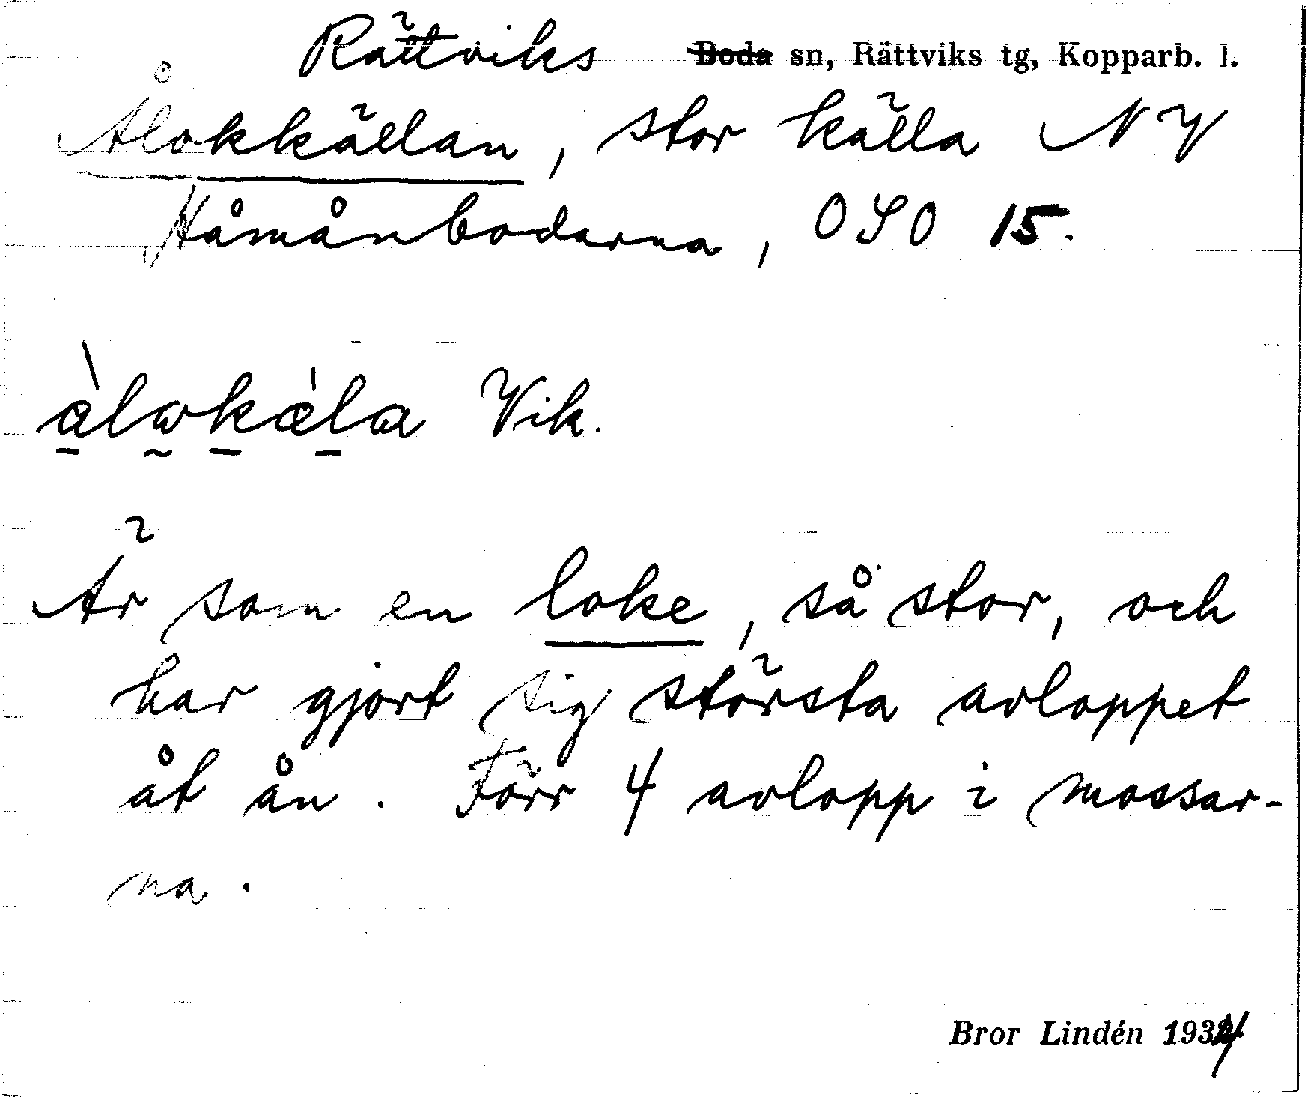 Rättviks Boda sn, Rättviks tg, Kopparb. l.
Ålokkällan, stor källa NV
Håmånbodarna, OSO 15.
àlωkæ̀la Vik.
Är som en loke, så stor, och
har gjort sig största avloppet
åt ån. Förr 4 avlopp i mossar-
na.
Bror Lindén 1934